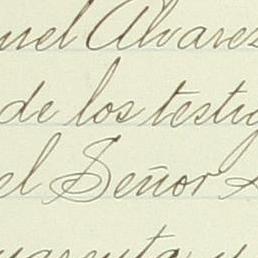 uel Alvarez
de los testig
el Señor
uarenta y